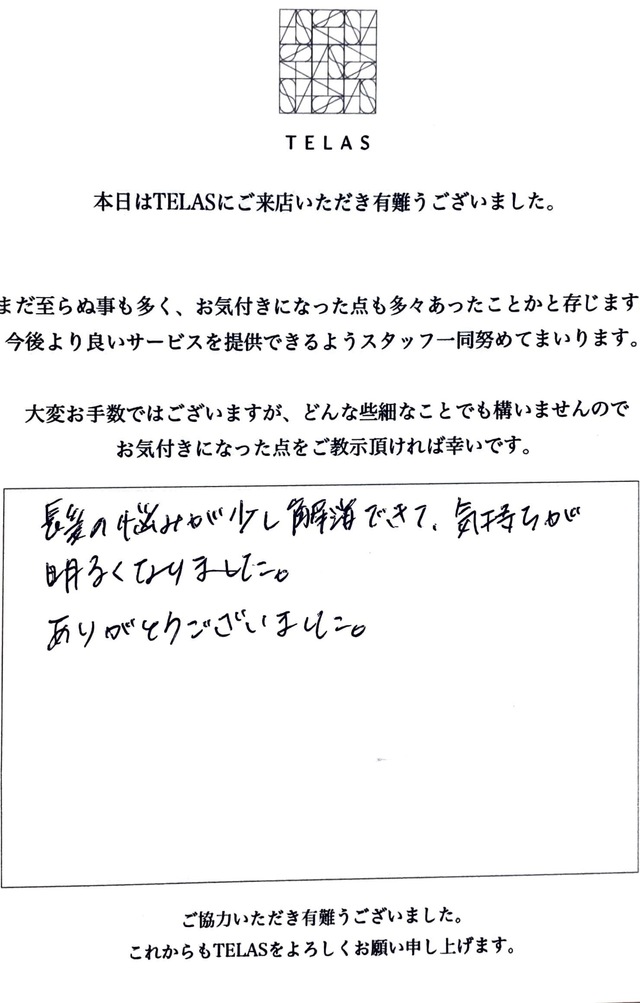 TELAS
本日はTELASにご来店いただき有難うございました。
まだ至らぬ事も多く、お気付きになった点も多々あったことかと存じます
今後より良いサービスを提供できるようスタッフ一同努めてまいります。
大変お手数ではございますが、どんな些細なことでも構いませんので
お気付きになった点をご教示頂ければ幸いです。
髪の悩みが少し解消できて、気持ちが
明るくなりました。
ありがとうございました。
ご協力いただき有難うございました。
これからもTELASをよろしくお願い申し上げます。